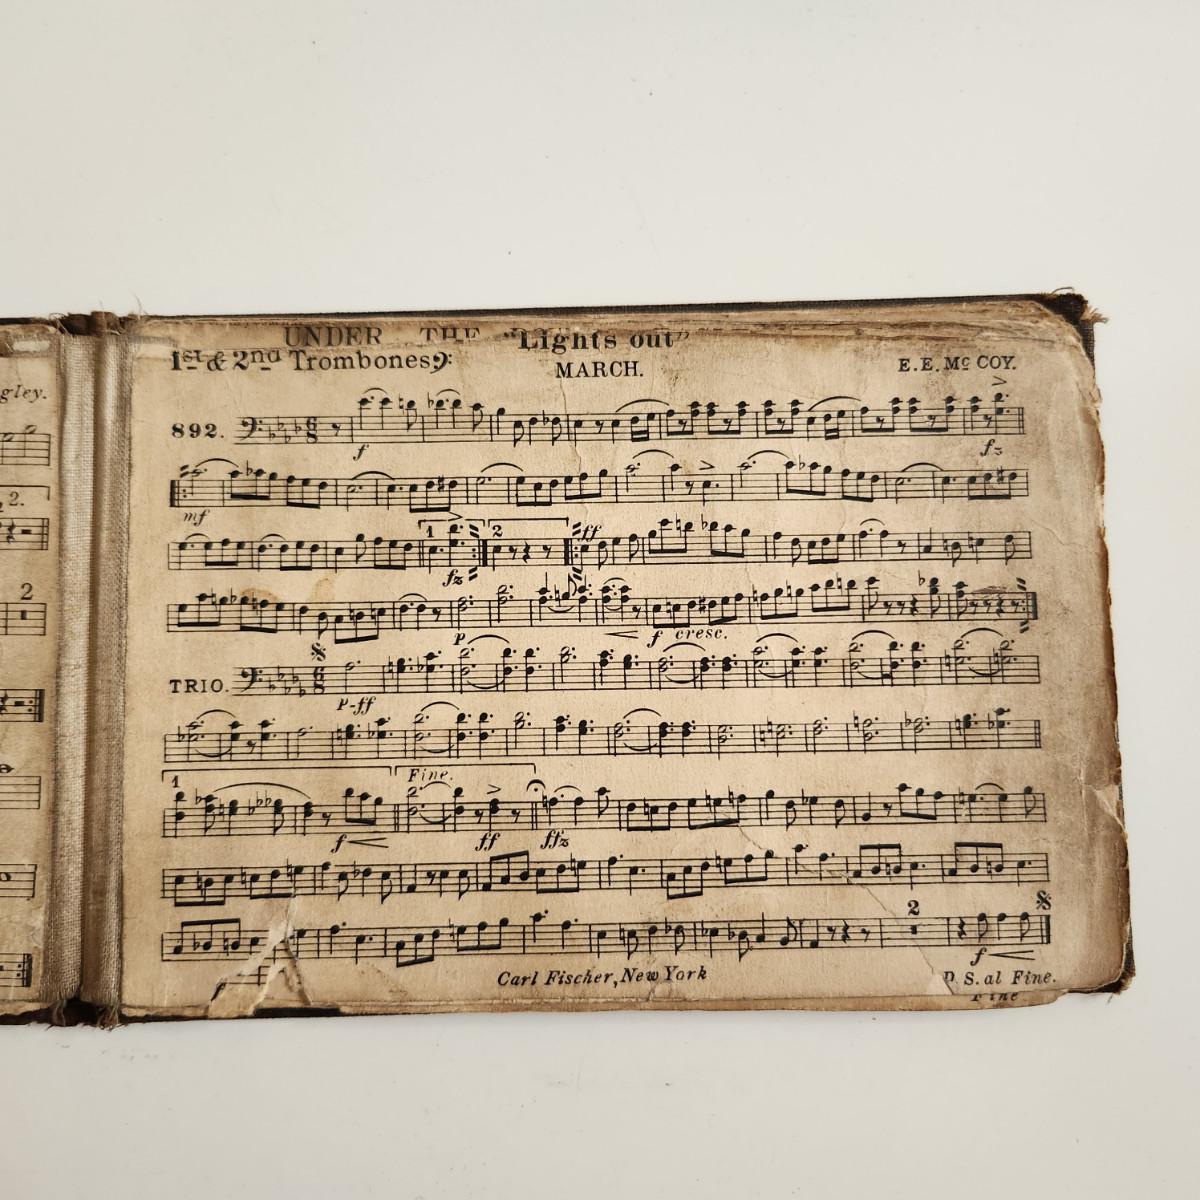 UNDER THE "Lights out"
1st & 2nd Trombones 9:
MARCH.
E. E. Mc COY.
gley.
892.
f
fz
2.
mf
1
2
ff
fz
2
p
f cresc.
TRIO.
p-ff
1
Fine.
f
ff
ffz
2
f
Carl Fischer, New York
D. S. al Fine.
Fine